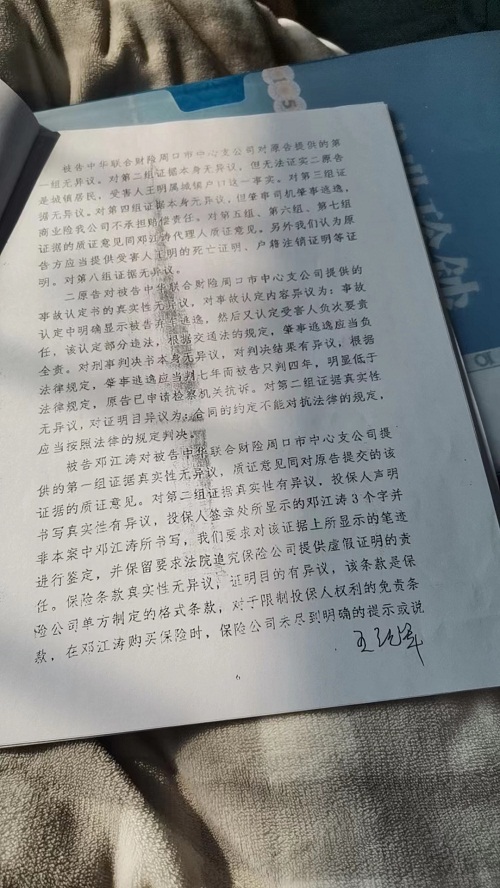 被告中华联合财险周口市中心支公司对原告提供的第
一组无异议。对第二组证据本身无异议，但无法证实二原告
是城镇居民，受害人王明属城镇户口这一事实。对第三组证
据无异议。对第四组证据本身无异议，但肇事司机肇事逃逸，
商业险我公司不承担赔偿责任。对第五组、第六组、第七组
证据的质证意见同邓江涛代理人质证意见。另外我们认为原
告方应当提供受害人王明的死亡证明、户籍注销证明等证
明。对第八组证据无异议。
二原告对被告中华联合财险周口市中心支公司提供的
事故认定书的真实性无异议，对事故认定内容异议为：事故
认定中明确显示被告弃车逃逸，然后又认定受害人负次要责
任，该认定部分违法，根据交通法的规定，肇事逃逸应当负
全责。对刑事判决书本身无异议，对判决结果有异议，根据
法律规定，肇事逃逸应当判七年而被告只判四年，明显低于
法律规定，原告已申请检察机关抗诉。对第二组证据真实性
无异议，对证明目异议为：合同的约定不能对抗法律的规定，
应当按照法律的规定判决。
被告邓江涛对被告中华联合财险周口市中心支公司提
供的第一组证据真实性无异议，质证意见同对原告提交的该
证据的质证意见。对第二组证据真实性有异议，投保人声明
书写真实性有异议，投保人签章处所显示的邓江涛3个字并
非本案中邓江涛所书写，我们要求对该证据上所显示的笔迹
进行鉴定，并保留要求法院追究保险公司提供虚假证明的责
任。保险条款真实性无异议，证明目的有异议，该条款是保
险公司单方制定的格式条款，对于限制投保人权利的免责条
款，在邓江涛购买保险时，保险公司未尽到明确的提示或说
6